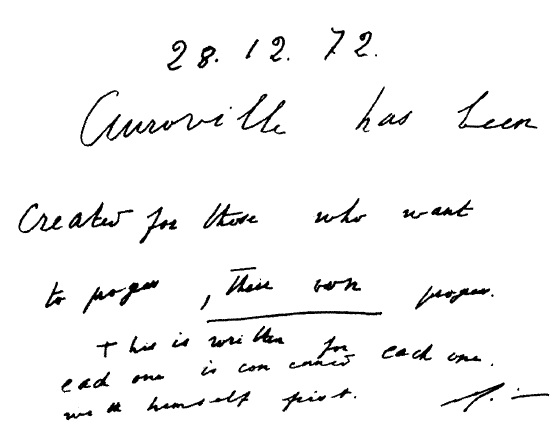 28.12.72.
Auroville has been
created for those who want
to progress, their own progress.
This is written for each one.
each one is concerned
with himself first.